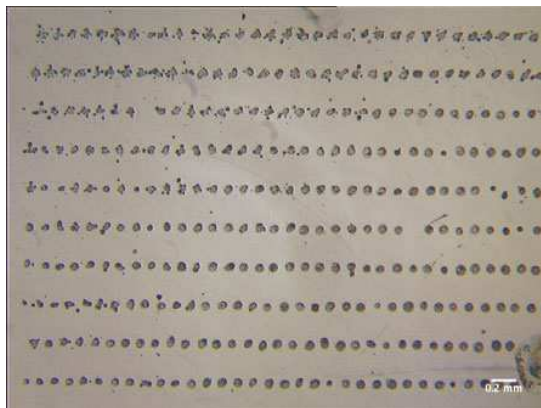 0.2 mm